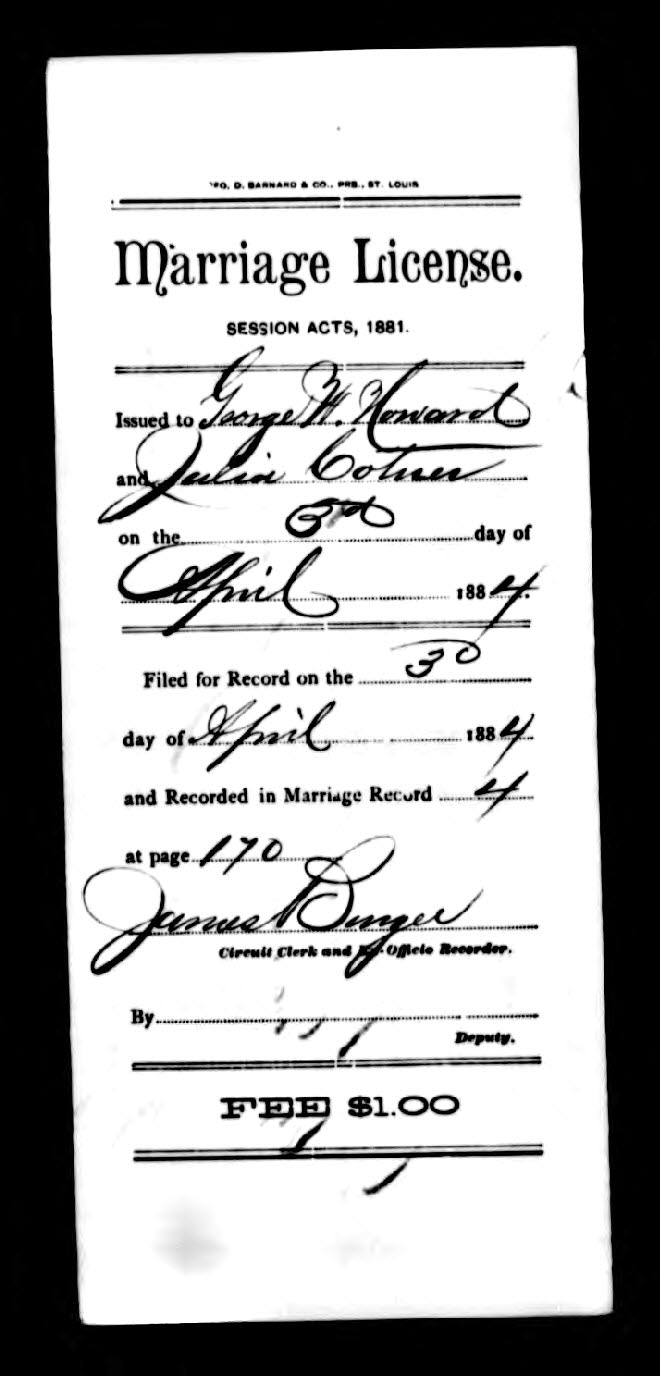 D. BARNARD & CO., PRS., ST. LOUIS
Marriage License.
SESSION ACTS, 1881.
Issued to George W. Howard
and Julia Cotner
on the 3rd day of
April 1884.
Filed for Record on the 3d
day of April 1884
and Recorded in Marriage Record 4
at page 170
James Burger
Circuit Clerk and Ex-Officio Recorder.
By
Deputy.
FEE $1.00